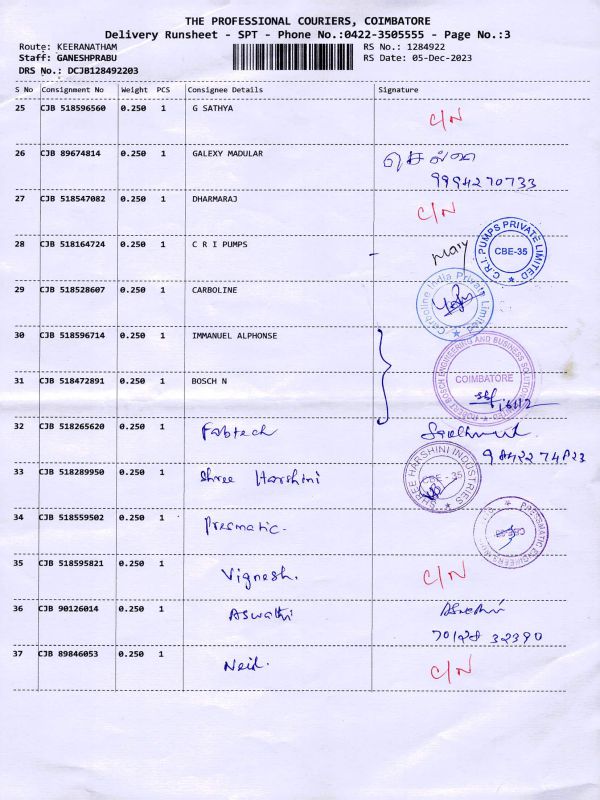 THE PROFESSIONAL COURIERS, COIMBATORE
Delivery Runsheet - SPT - Phone No.:0422-3505555 - Page No.:3
Route: KEERANATHAM RS No.: 1284922
Staff: GANESHPRABU RS Date: 05-Dec-2023
DRS No.: DCJB128492203
S No Consignment No Weight PCS Consignee Details Signature
25 CJB 518596560 0.250 1 G SATHYA C/N
26 CJB 89674814 0.250 1 GALEXY MADULAR
9994270733
27 CJB 518547082 0.250 1 DHARMARAJ C/N
28 CJB 518164724 0.250 1 C R I PUMPS Mary
C.R.I. PUMPS PRIVATE LIMITED CBE-35
29 CJB 518528607 0.250 1 CARBOLINE
Carboline India Private Limited
30 CJB 518596714 0.250 1 IMMANUEL ALPHONSE
ROBERT BOSCH ENGINEERING AND BUSINESS SOLUTIONS COIMBATORE
31 CJB 518472891 0.250 1 BOSCH N
32 CJB 518265620 0.250 1 Fabtech
33 CJB 518289950 0.250 1 Shree Harshini
SHREE HARSHINI INDUSTRIES CBE - 35
34 CJB 518559502 0.250 1 Presmatic.
35 CJB 518595821 0.250 1 Vignesh. C/N
36 CJB 90126014 0.250 1 Aswathi
70128 32390
37 CJB 89846053 0.250 1 Neid. C/N